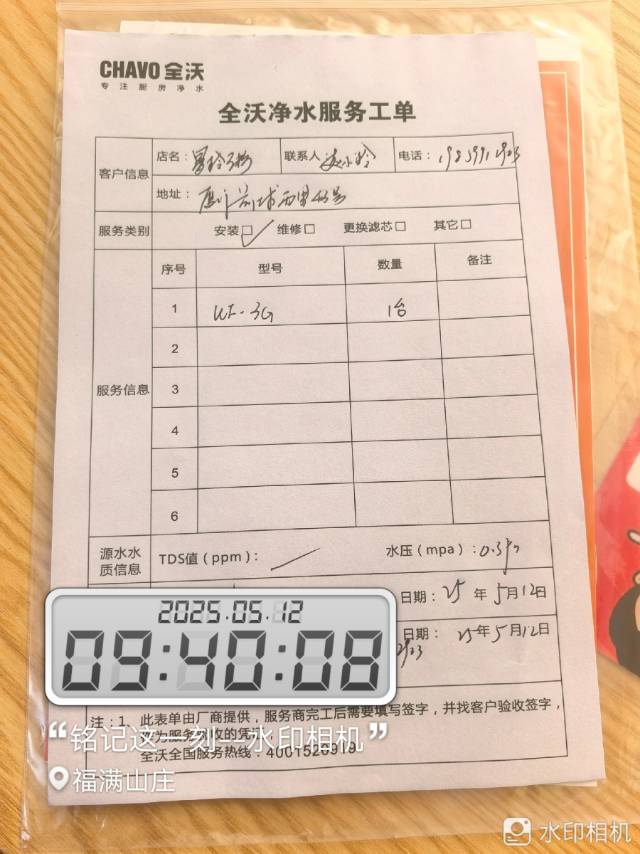 CHAVO 全沃
专注厨房净水
全沃净水服务工单
客户信息
店名：
联系人
电话：
地址：
服务类别
安装□ 维修□ 更换滤芯□ 其它□
服务信息
序号 型号 数量 备注
1 1台
2
3
4
5
6
源水水质信息
TDS值（ppm）：
水压（mpa）：
日期：25年5月12日
日期：25年5月12日
2025.05.12
09:40:08
注：1、此表单由厂商提供，服务商完工后需要填写签字，并找客户验收签字，
全沃全国服务热线：4001520919
“铭记这一刻 水印相机”
福满山庄
水印相机